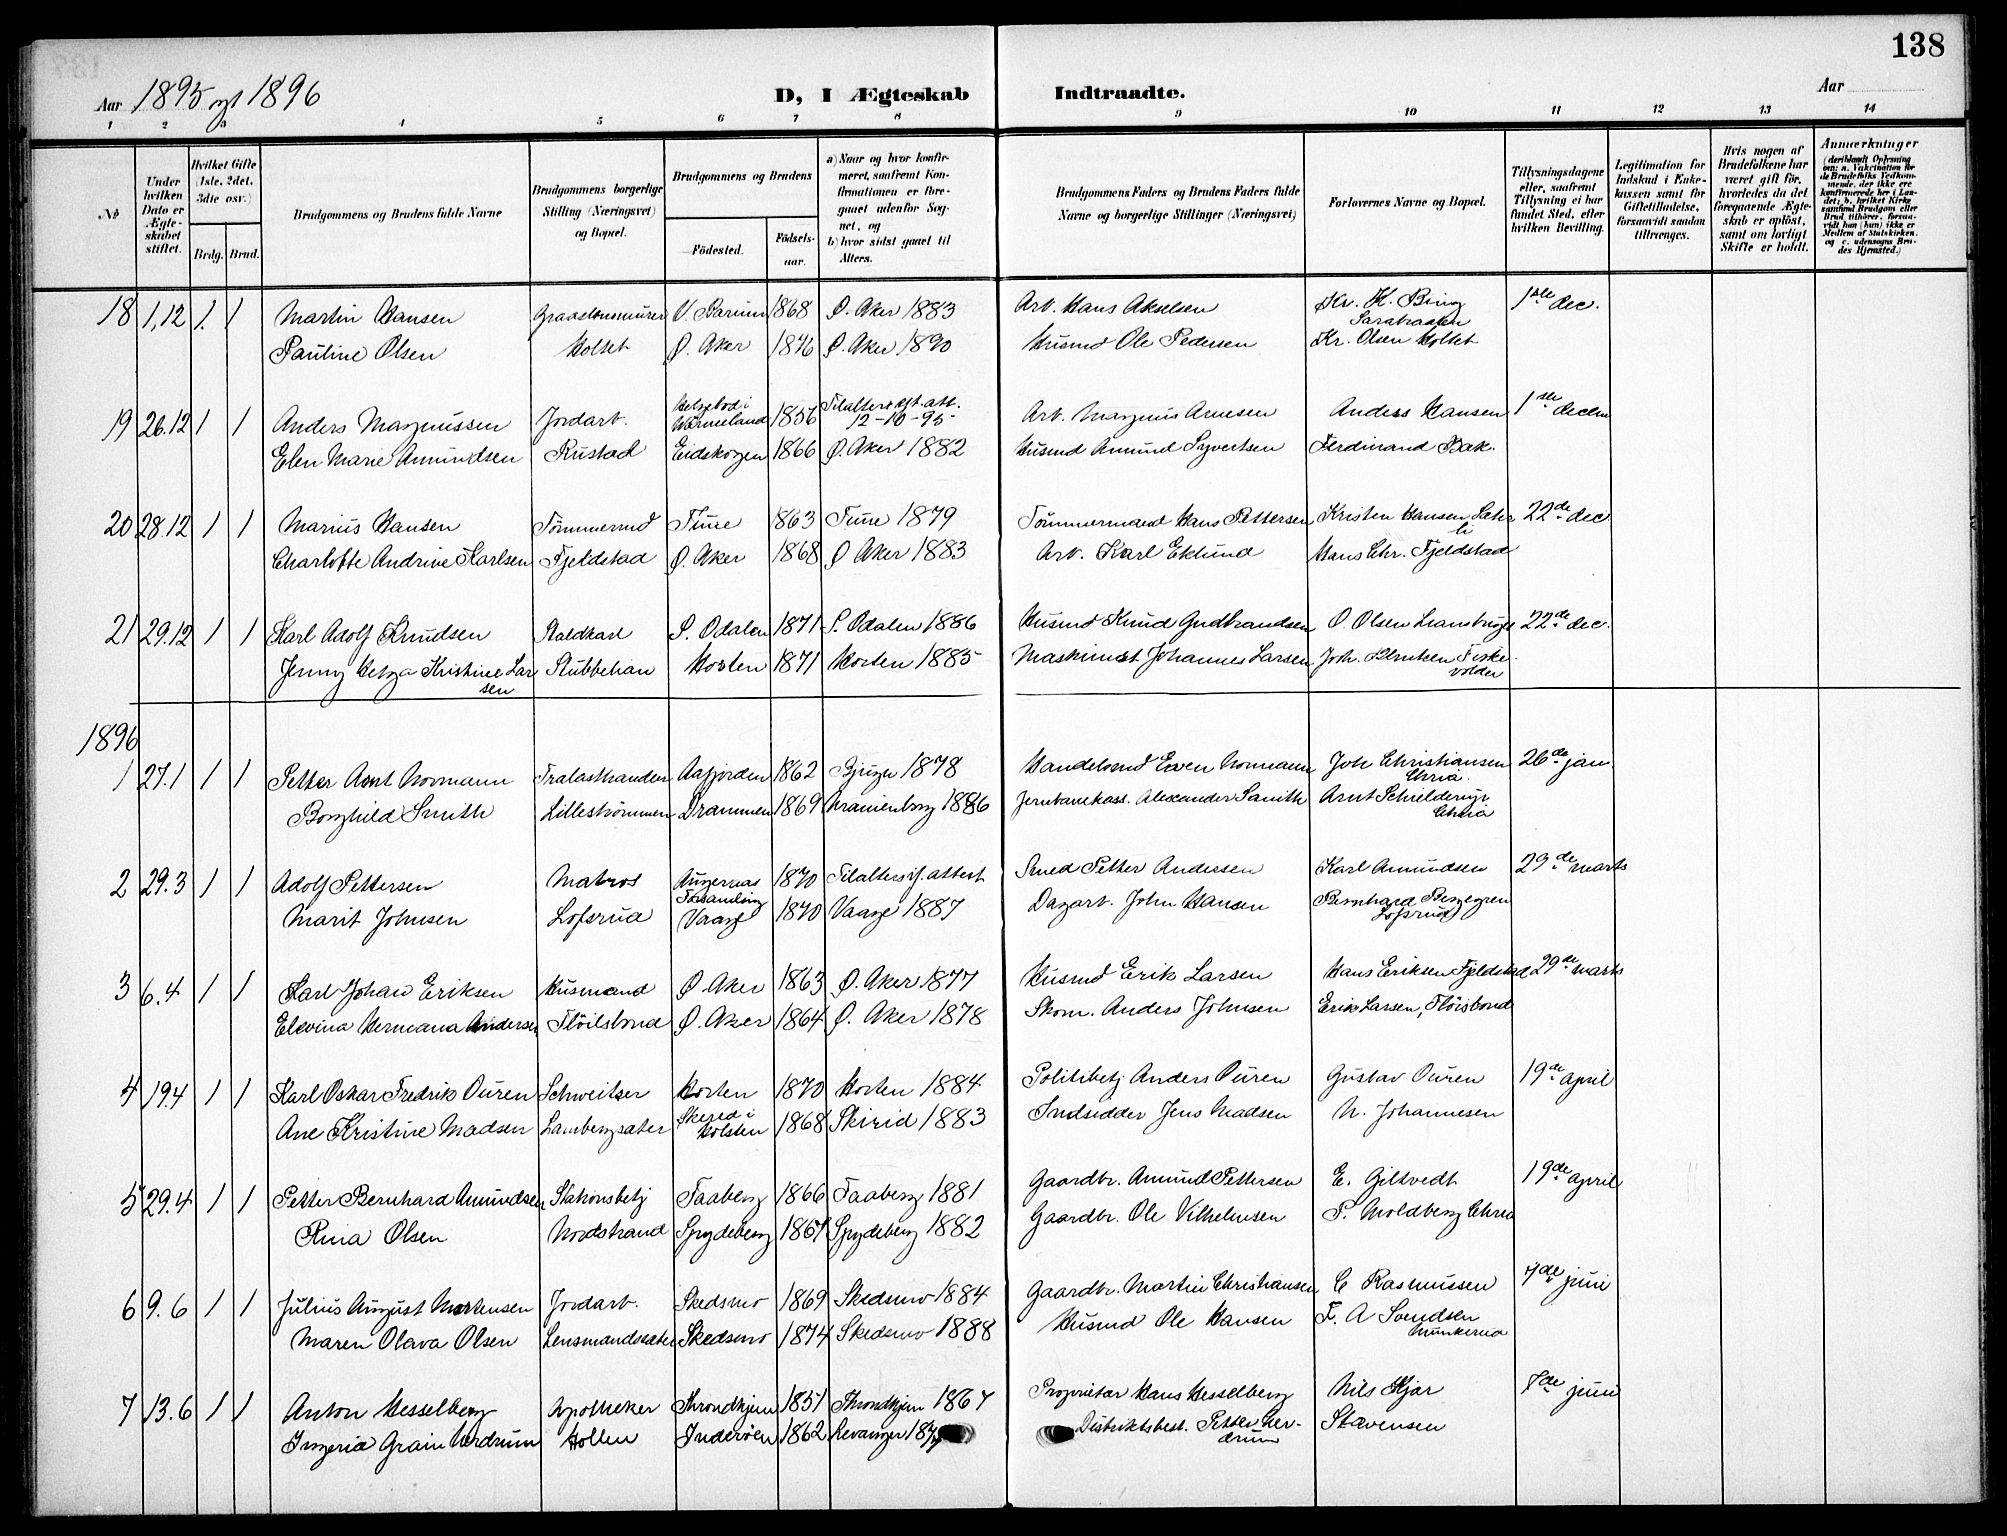 138
Aar 1895 og 1896 D, I Ægteskab Indtraadte. Aar
1 2 3 4 5 6 7 8 9 10 11 12 13 14
No
Under hvilken Dato er Ægteskabet stiftet.
Hvilket Gifte (1ste, 2det, 3die osv.)
Brdg. Brud.
Brudgommens og Brudens fulde Navne
Brudgommens borgerlige Stilling (Næringsvei) og Bopæl.
Brudgommens og Brudens
Födested. Födselsaar.
a) Naar og hvor konfirmeret, saafremt Konfirmationen er foregaaet udenfor Sognet, og
b) hvor sidst gaaet til Alters.
Brudgommens Faders og Brudens Faders fulde Navne og borgerlige Stillinger (Næringsvei)
Forlovernes Navne og Bopæl.
Tillysningsdagene eller, saafremt Tillysning ei har fundet Sted, efter hvilken Bevilling.
Legitimation for Indskud i Enkekassen samt for Giftetilladelse, forsaavidt saadan tiltrænges.
Hvis nogen af Brudefolkene har været gift för, hvorledes da det foregaaende Ægteskab er oplöst, samt om lovligt Skifte er holdt.
Anmærkninger
(deriblandt Oplysning om: a. Vakcination for de Brudefolks Vedkommende, der ikke ere konfirmerede her i Landet; b. hvilket Kirkesamfund Brudgom eller Brud tilhörer, forsaavidt han (hun) ikke er Medlem af Statskirken, og c. udensogns Brudes Hjemsted.)
18 1,12 1. 1 Martin Hansen Graastensmurer V. Bærum 1868 Ø. Aker 1883 Arb. Hans Akselsen Kr. H. Bing 1ste dec.
Sarabraaten
Pauline Olsen Holtet Ø. Aker 1876 Ø. Aker 1890 Husmd Ole Pedersen Kr. Olsen Holtet
19 26.12 1 1 Anders Magnussen Jordarb. Helgebod i Wermeland 1856 Tilalters if. att. 12-10-95 Arb. Magnus Arnesen Anders Hansen 1ste decem
Elen Marie Amundsen Rustad Eidskogen 1866 Ø. Aker 1882 Husmd Amund Syvertsen Ferdinand Bak.
20 28.12 1 1 Marius Hansen Tømmermd Tune 1863 Tune 1879 Tømmermand Hans Pettersen Kristen Hansen Sæterli 22de dec
Charlotte Andrine Karlsen Fjeldstad Ø. Aker 1868 Ø Aker 1883 Arb. Karl Eklund Hans Chr. Fjeldstad
21 29.12 1 1 Karl Adolf Knudsen Staldkarl S. Odalen 1871 S. Odalen 1886 Husmd Knud Gudbrandsen O. Olsen Liansbråget 22de dec.
Jenny Helga Kristine Larsen Stubbehan Horten 1871 Horten 1885 Maskinist Johannes Larsen Joh. Berntsen Fiskevolden
1896
1 27.1 1 1 Petter Arnt Normann Trælasthandler Aafjorden 1862 Bjugn 1878 Handelsmd Even Normann Joh Christiansen 26de jan
Chria.
Borghild Smith Lillestrømmen Drammen 1869 Uranienborg 1886 Jernbanekass. Alexander Smith Arnt Schielderup
Chria
2 29.3 1 1 Adolf Pettersen Matros Augernæs Forsamling 1870 Tilalters if. attest Smed Petter Andersen Karl Amundsen 29de marts
Marit Johnsen Lofsrud Vaage 1870 Vaage 1887 Dagarb. John Hansen Bernhard Berggren
Lofsrud
3 6.4 1 1 Karl Johan Eriksen Husmand Ø. Aker 1863 Ø. Aker 1877 Husmd Erik Larsen Hans Eriksen Fjeldstad 29de marts
Elevina Hermana Andersen Fløilsbond Ø. Aker 1864 Ø. Aker 1878 Skom. Anders Johnsen Erik Larsen, Fløisbond
4 19.4 1 1 Karl Oskar Fredrik Ouren Schweitser Horten 1870 Horten 1884 Politibetj Anders Ouren Gustav Ouren 19de april
Ane Kristine Madsen Lambergsæter Skered i Holsten 1868 Skirid 1883 Indsidder Jens Madsen N. Johannesen
5 29.4 1 1 Petter Bernhard Amundsen Stationsbetj Faaberg 1866 Faaberg 1881 Gaardbr. Amund Pettersen E. Giltvedt 19de april
Rina Olsen Nordstrand Spydeberg 1867 Spydeberg 1882 Gaardbr. Ole Vilhelmsen P. Moldberg Chria
6 9.6 1 1 Julius August Mortensen Jordarb. Skedsmo 1869 Skedsmo 1884 Gaardbr. Martin Christiansen C Rasmussen 7de juni
Maren Olava Olsen Lensmandssæter Skedsmo 1874 Skedsmo 1888 Husmd Ole Hansen F. A Svendsen
Munkerud
7 13.6 1 1 Anton Hesselberg Apotheker Throndhjem 1851 Throndhjem 1867 Proprietær Hans Hesselberg Nils Kjær 7de juni
Ingeria Grain Verdrum Hollen Inderøen 1862 Levanger Distriktsbest. Petter Verdrum Stavensen